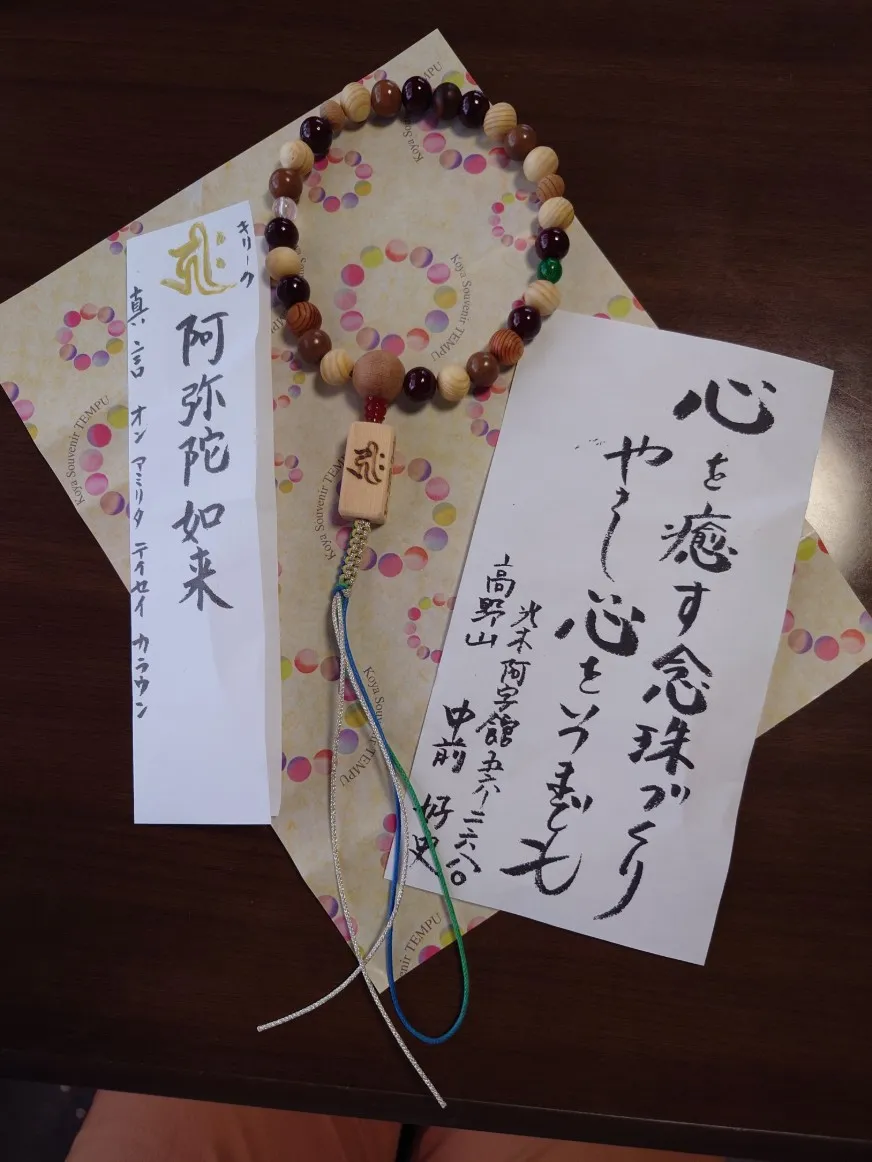 キリーク
阿弥陀如来
真言 オン アミリタ テイセイ カラウン
心を癒す念珠づくり
やさし心をいつまでも
阿字館 五六ー二六八〇
高野山 中前 好史
Koya Souvenir TEMPU
Koya Souvenir TEMPU
Koya Souvenir TEMPU
Koya Souvenir TEMPU